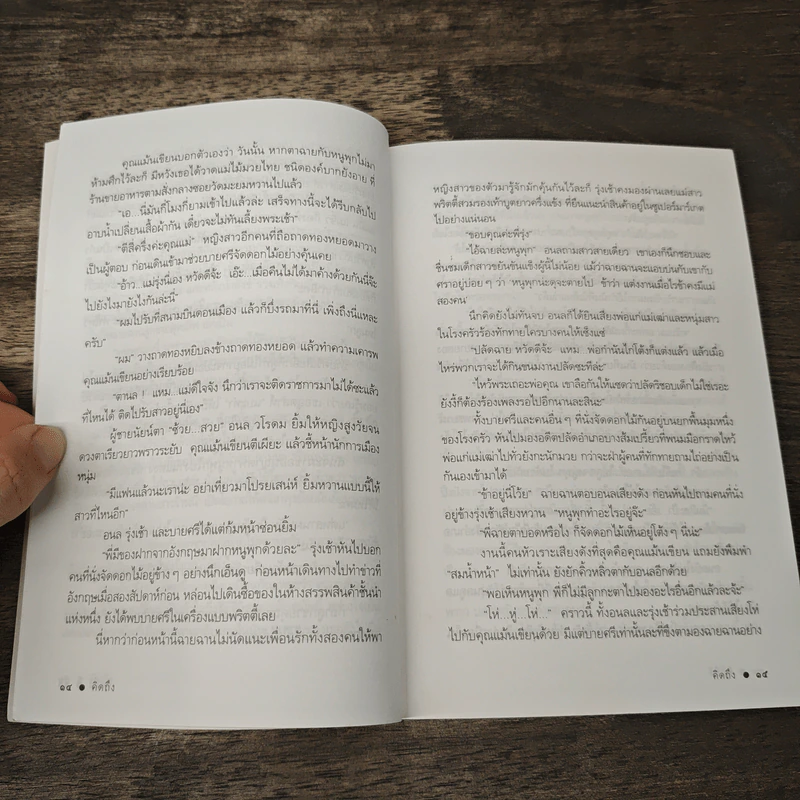 คุณแม้นเขียนบอกตัวเองว่า วันนั้น หากตาฉายกับหนูพุกไม่มา
ห้ามศึกไว้ละก็ มีหวังเธอได้วาดแม่ไม้มวยไทย ชนิดองค์บากยังอาย ที่
ร้านขายอาหารตามสั่งกลางซอยวัดมะยมหวานไปแล้ว
"เอ...นี่มันกี่โมงกี่ยามเข้าไปแล้วล่ะ เสร็จทางนี้จะได้รีบกลับไป
อาบน้ำเปลี่ยนเสื้อผ้ากัน เดี๋ยวจะไม่ทันเลี้ยงพระเช้า"
"ตีสี่ครึ่งค่ะคุณแม่" หญิงสาวอีกคนที่ถือถาดทองหยอดมาวาง
เป็นผู้ตอบ ก่อนเดินเข้ามาช่วยบายศรีจัดดอกไม้อย่างคุ้นเคย
"อ้าว...แม่รุ่งนี่เอง หวัดดีจ้ะ เอ๊ะ...เมื่อคืนไม่ได้มาค้างด้วยกันนี่จ๊ะ
ไปยังไงมายังไงกันล่ะนี่"
"ผมไปรับที่สนามบินดอนเมือง แล้วก็บึ่งรถมาที่นี่ เพิ่งถึงนี่แหละ
ครับ"
"ผม" วางถาดทองหยิบลงข้างถาดทองหยอด แล้วทำความเคารพ
คุณแม้นเขียนอย่างเรียบร้อย
"ตานล ! แหม...แม่ดีใจจัง นึกว่าเราจะติดราชการมาไม่ได้ซะแล้ว
ที่ไหนได้ ติดไปรับสาวอยู่นี่เอง"
ผู้ชายนัยน์ตา "ซ้วย...สวย" อนล วโรดม ยิ้มให้หญิงสูงวัยจน
ดวงตาเรียวยาวพราวระยับ คุณแม้นเขียนตีเผียะ แล้วชี้หน้านักการเมือง
หนุ่ม
"มีแฟนแล้วนะเราน่ะ อย่าเที่ยวมาโปรยเสน่ห์ ยิ้มหวานแบบนี้ให้
สาวที่ไหนอีก"
อนล รุ่งเช้า และบายศรีได้แต่ก้มหน้าซ่อนยิ้ม
"พี่มีของฝากจากอังกฤษมาฝากหนูพุกด้วยละ" รุ่งเช้าหันไปบอก
คนที่นั่งจัดดอกไม้อยู่ข้างๆ อย่างนึกเอ็นดู ก่อนหน้าเดินทางไปทำข่าวที่
อังกฤษเมื่อสองสัปดาห์ก่อน หล่อนไปเดินซื้อของในห้างสรรพสินค้าชั้นนำ
แห่งหนึ่ง ยังได้พบบายศรีในเครื่องแบบพริตตี้เลย
นี่หากว่าก่อนหน้านี้ฉายฉานไม่นัดแนะเพื่อนรักทั้งสองคนให้พา
๑๔ ● คิดถึง
หญิงสาวของตัวมารู้จักมักคุ้นกันไว้ละก็ รุ่งเช้าคงมองผ่านเลยแม่สาว
พริตตี้สวมรองเท้าบูตยาวครึ่งแข้ง ที่ยืนแนะนำสินค้าอยู่ในซูเปอร์มาร์เกต
ไปอย่างแน่นอน
"ขอบคุณค่ะพี่รุ่ง"
"ไอ้ฉายล่ะหนูพุก" อนลถามสาวสายเดี่ยว เขาเองก็นึกชอบและ
ชื่นชมเด็กสาวขยันขันแข็งผู้นี้ไม่น้อย แม้ว่าฉายฉานจะแอบบ่นกับเขากับ
ศราอยู่บ่อยๆ ว่า หนูพุกน่ะดุจะตายไป ข้าว่า แต่งงานเมื่อไรข้าคงมีแม่
สองคน
นึกคิดยังไม่ทันจบ อนลก็ได้ยินเสียงพ่อแก่แม่เฒ่าและหนุ่มสาว
ในโรงครัวร้องทักทายใครบางคนให้เซ็งแซ่
"ปลัดฉาย หวัดดีจ้ะ แหม พ่อกำนันไก่โต้งก็แต่งแล้ว แล้วเมื่อ
ไหร่พวกเราจะได้กินขนมงานปลัดซะทีล่ะ"
"ไหว้พระเถอะพ่อคุณ เขาลือกันให้แซดว่าปลัดรีชอบเด็กไม่ใช่เรอะ
ยังงี้ก็ต้องร้องเพลงรอไปอีกนานละสินะ"
ทั้งบายศรีและคนอื่นๆ ที่นั่งจัดดอกไม้กันอยู่บนยกพื้นมุมหนึ่ง
ของโรงครัว หันไปมองอดีตปลัดอำเภอบางส้มเปรี้ยวที่พนมมือกราดไหว้
พ่อแก่แม่เฒ่าไปทั่วยังกะนักมวย กว่าจะฝ่าผู้คนที่ทักทายถามไถ่อย่างเป็น
กันเองเข้ามาได้
"ข้าอยู่นี่โว้ย" ฉายฉานตอบอนลเสียงดัง ก่อนหันไปถามคนที่นั่ง
อยู่ข้างรุ่งเช้าเสียงหวาน "หนูพุกทำอะไรอยู่จ๊ะ"
"พี่ฉายตาบอดหรือไง ก็จัดดอกไม้เห็นอยู่โต้งๆ นี่น่ะ"
งานนี้คนหัวเราะเสียงดังที่สุดคือคุณแม้นเขียน แถมยังพึมพำ
"สมน้ำหน้า" ไม่เท่านั้น ยังยักคิ้วหลิ่วตากับอนลอีกด้วย
"พอเห็นหนูพุก พี่ก็ไม่มีลูกกะตาไปมองอะไรอื่นอีกแล้วละจ้ะ"
"โห่...หู่...โห่..." คราวนี้ ทั้งอนลและรุ่งเช้าร่วมประสานเสียงโห่
ไปกับคุณแม้นเขียนด้วย มีแต่บายศรีเท่านั้นละที่ขึงตามองฉายฉานอย่าง
คิดถึง ● ๑๕